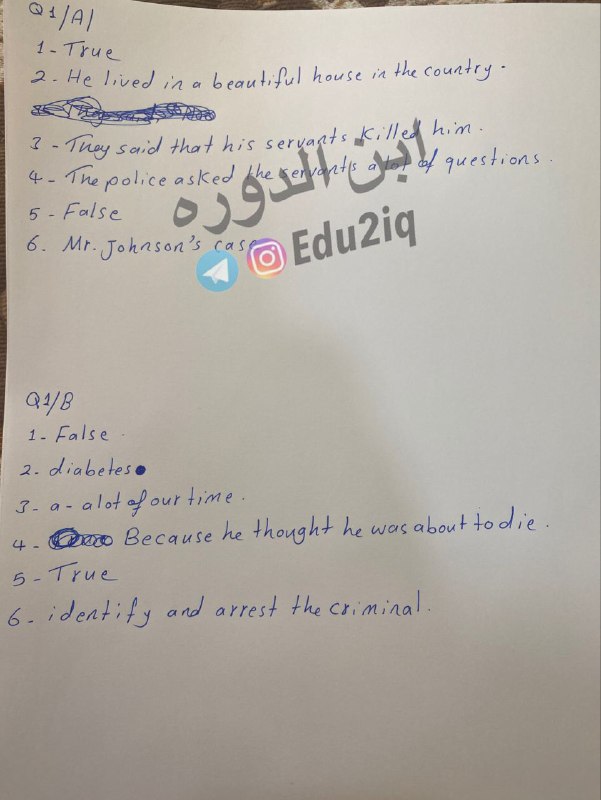 Q1/A/
1 - True
2 - He lived in a beautiful house in the country.
3 - They said that his servants killed him.
4 - The police asked the servants a lot of questions.
5 - False
6. Mr. Johnson's case
ابن الدوره
Edu2iq
Q1/B
1 - False.
2 - diabetes
3 - a - a lot of our time.
4 - Because he thought he was about to die.
5 - True
6 - identify and arrest the criminal.